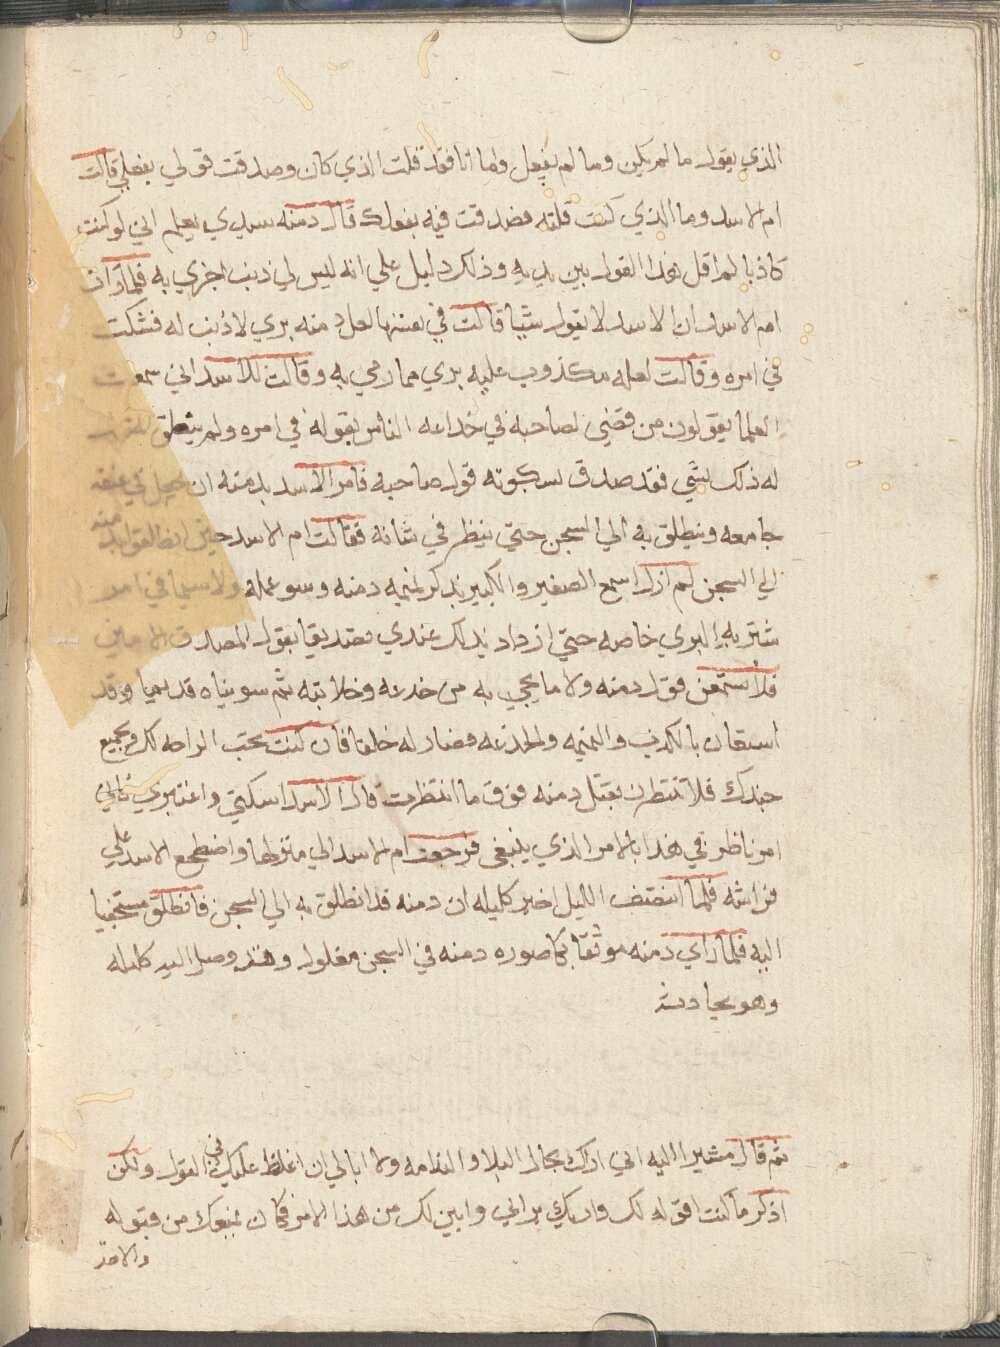 الذي يقول ما لم يكن وما لم يفعل واما انا فقد قلت الذي كان وصدقت قولي بفعلي قالت
ام الاسد وما الذي كنت قلته فصدقت فيه بفعلك قال دمنه سيدي يعلم اني لو كنت
كاذبا لم اقل هذا القول بين يديه وذلك دليل علي انه ليس لي ذنب اجزي به فلما رات
ام الاسد ان الاسد لا يقول شيا قالت في نفسها لعل دمنه بري لا ذنب له فشكت
في امره وقالت لعله مكذوب عليه بري مما رمي به وقالت للاسد اني سمعت
العلما يقولون من قضي لصاحبه في خداعه الناس بقوله في امره ولم ينطق
له ذلك بشي فقد صدق بسكوته قول صاحبه فامر الاسد بدمنه ان يجعل في عنقه
جامعه وينطلق به الي السجن حتي ينظر في شانه فقالت ام الاسد حين انطلقوا بدمنه
الي السجن لم ازل اسمع الصغير والكبير يذكر نميمه دمنه وسو عمله ولا سيما في امر
شتربه البري خاصه حتي ازداد بذلك عندي تصديقا بقول المصدق الامين
فلا تسمعن قول دمنه ولا ما يجي به من خدعه وخلابته ثم سو نياه قديما وقد
استعان بالكذب والنميمه والخدعه فصار له خلقا فان كنت تحب الراحه لك ولجميع
جندك فلا تنتظرن بقتل دمنه فوق ما انتظرت قال الاسد اسكتي واعتبري فاني
امر ناظر في هذا بالامر الذي ينبغي فرجعت ام الاسد الي منزلها واضطجع الاسد علي
فراشه فلما انتصف الليل اخبر كليله ان دمنه قد انطلق به الي السجن فانطلق مستخفيا
اليه فلما راي دمنه موثقا بكا صوره دمنه في السجن مغلول وقد وصل اليه كليله
وهو يحادثه
ثم قال مشيرا اليه اني اراك بحال البلا والندامه ولا ابالي ان اغلظ عليك في القول ولكن
اذكر ما كنت اقوله لك واريك براني وابين لك من هذا الامر فكان يمنعك من قبوله